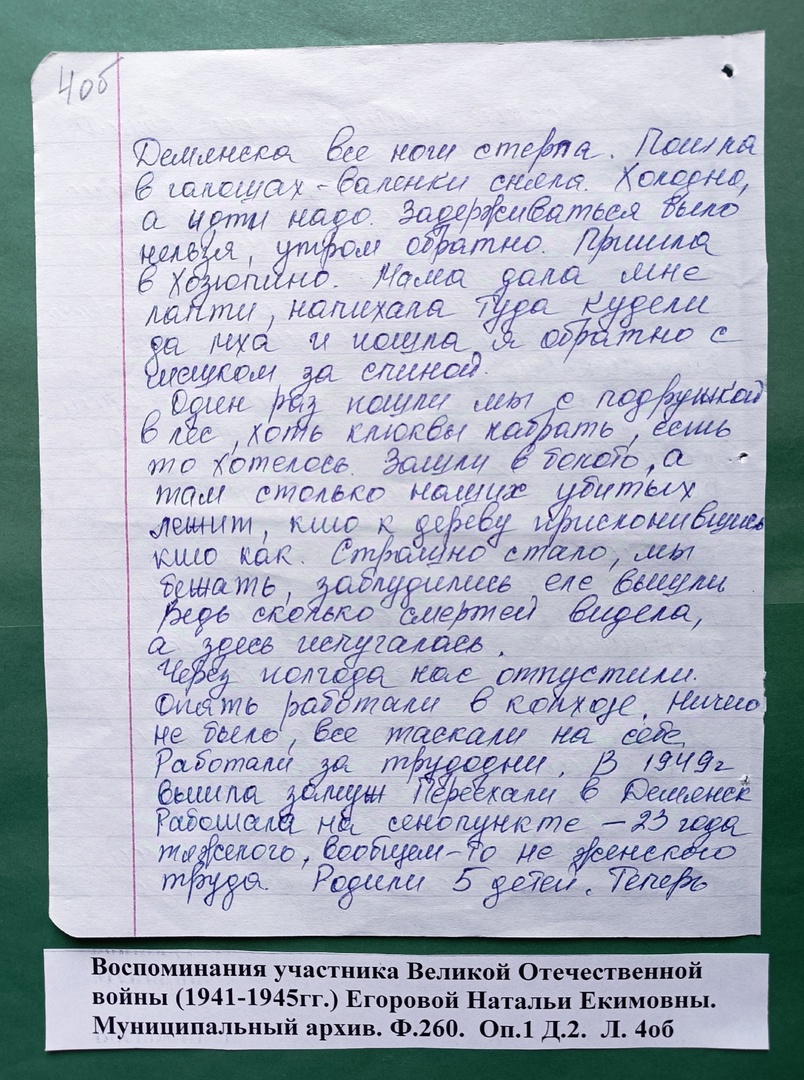 4об
Демянска все ноги стерла. Пошла
в галошах - валенки сняла. Холодно,
а идти надо. Задерживаться было
нельзя, утром обратно. Пришла
в Хозюпино. Мама дала мне
лапти, напихала туда кудели
да меха и пошла я обратно с
мешком за спиной.
Один раз пошли мы с подружкой
в лес, хоть клюквы набрать, есть
то хотелось. Зашли в болото, а
там столько наших убитых
лежит, кто к дереву прислонившись
кто как. Страшно стало, мы
бежать, заблудились, еле вышли
Ведь сколько смертей видела,
а здесь испугалась.
Через полгода нас отпустили.
Опять работали в колхозе. Ничего
не было, все таскали на себе.
Работали за трудодни. В 1949г
вышла замуж Переехали в Демянск
Работала на сенопункте - 23 года
тяжелого, вообщем-то не женского
труда. Родили 5 детей. Теперь
Воспоминания участника Великой Отечественной
войны (1941-1945гг.) Егоровой Натальи Екимовны.
Муниципальный архив. Ф.260. Оп.1 Д.2. Л. 4об